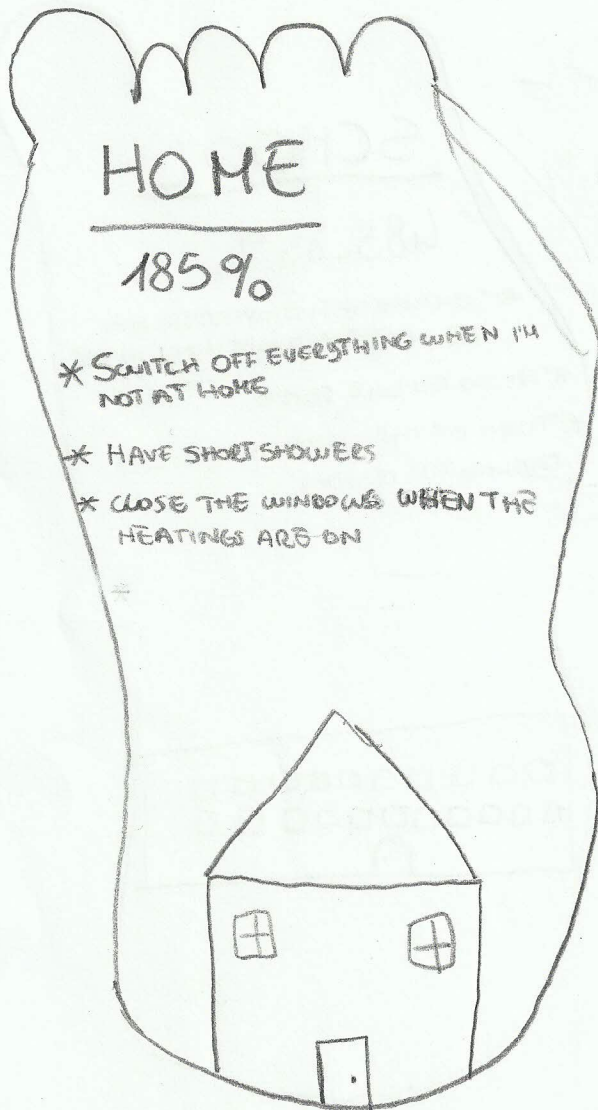 HOME
185%
* SWITCH OFF EVERYTHING WHEN I'M
NOT AT HOME
* HAVE SHORT SHOWERS
* CLOSE THE WINDOWS WHEN THE
HEATINGS ARE ON
*